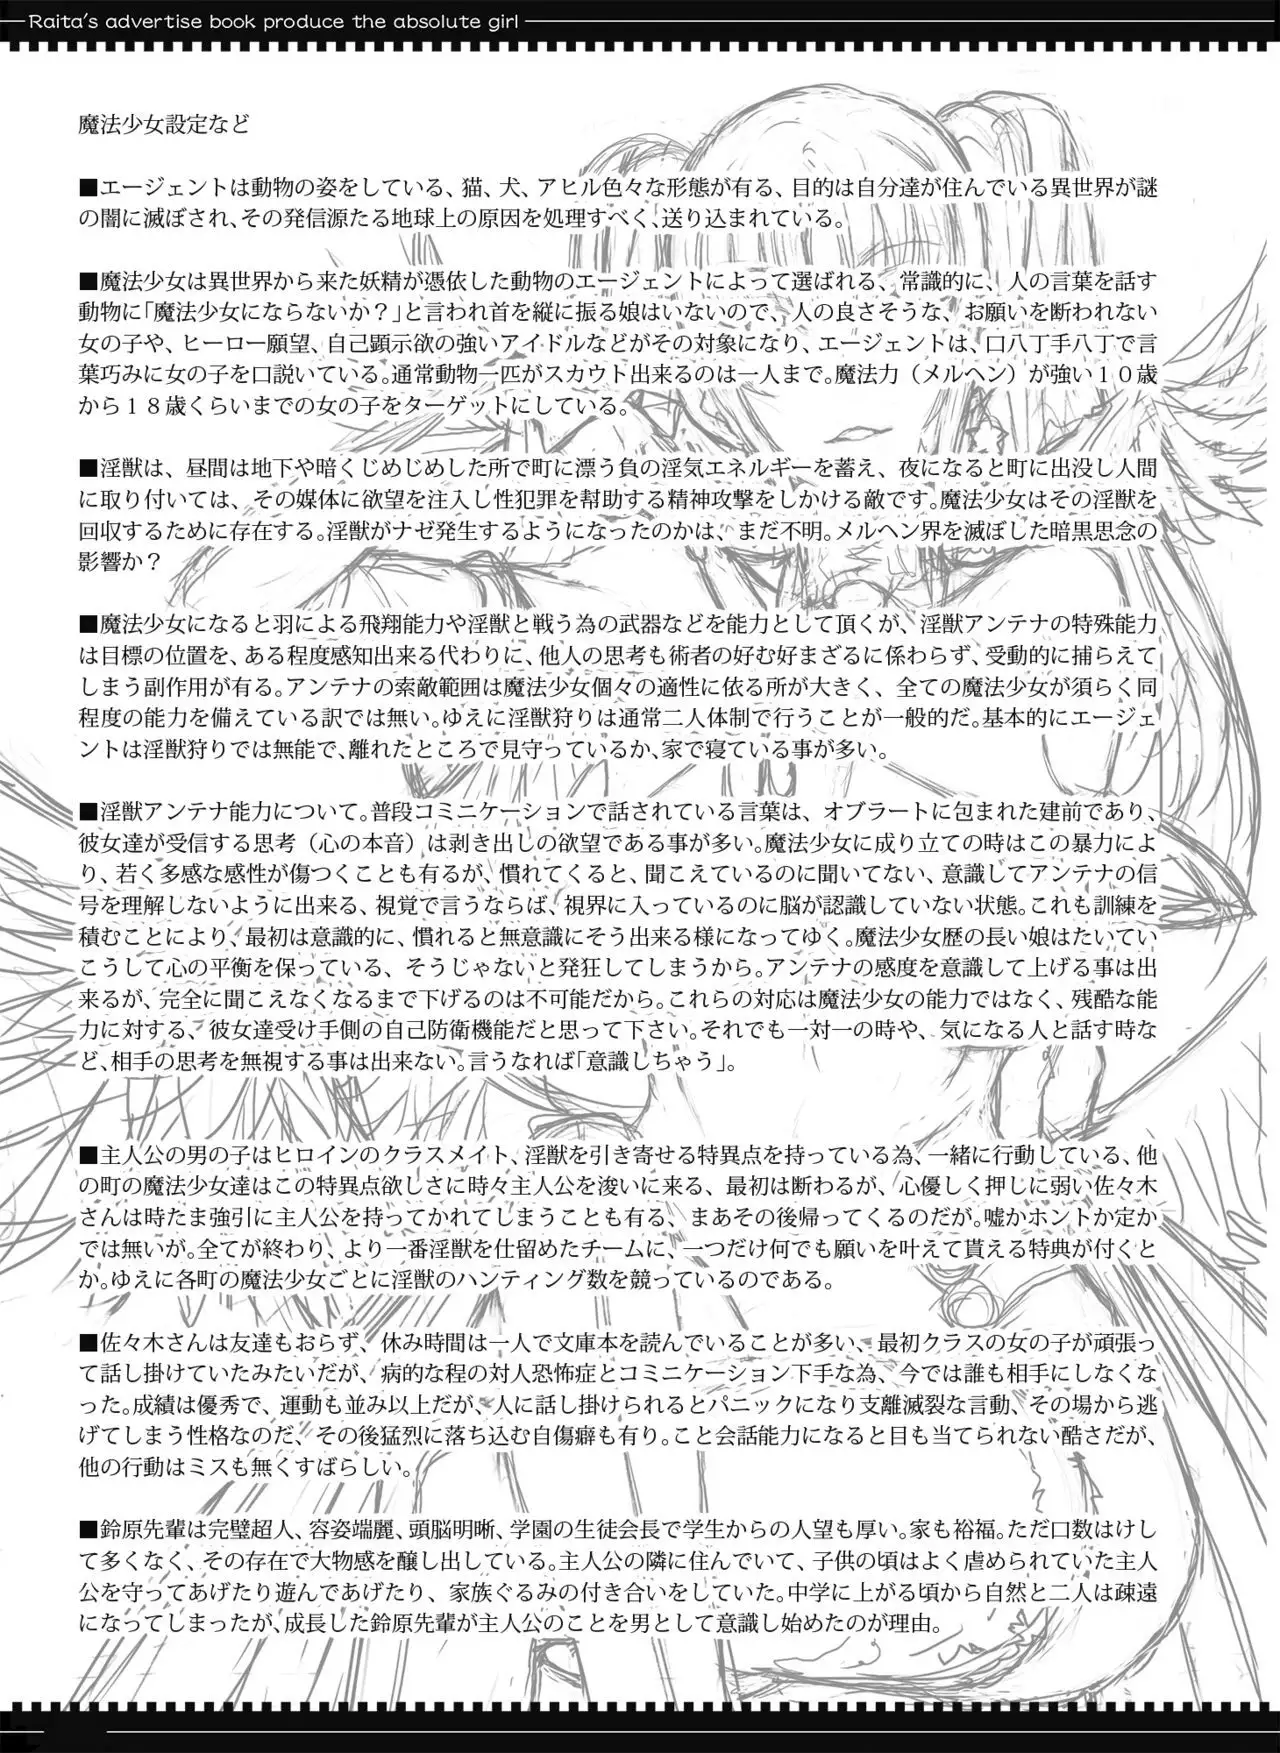 Raita's advertise book produce the absolute girl
魔法少女設定など
■エージェントは動物の姿をしている、猫、犬、アヒル色々な形態が有る、目的は自分達が住んでいる異世界が謎
の闇に滅ぼされ、その発信源たる地球上の原因を処理すべく、送り込まれている。
■魔法少女は異世界から来た妖精が憑依した動物のエージェントによって選ばれる、常識的に、人の言葉を話す
動物に「魔法少女にならないか？」と言われ首を縦に振る娘はいないので、人の良さそうな、お願いを断われない
女の子や、ヒーロー願望、自己顕示欲の強いアイドルなどがその対象になり、エージェントは、口八丁手八丁で言
葉巧みに女の子を口説いている。通常動物一匹がスカウト出来るのは一人まで。魔法力（メルヘン）が強い１０歳
から１８歳くらいまでの女の子をターゲットにしている。
■淫獣は、昼間は地下や暗くじめじめした所で町に漂う負の淫気エネルギーを蓄え、夜になると町に出没し人間
に取り付いては、その媒体に欲望を注入し性犯罪を幇助する精神攻撃をしかける敵です。魔法少女はその淫獣を
回収するために存在する。淫獣がナゼ発生するようになったのかは、まだ不明。メルヘン界を滅ぼした暗黒思念の
影響か？
■魔法少女になると羽による飛翔能力や淫獣と戦う為の武器などを能力として頂くが、淫獣アンテナの特殊能力
は目標の位置を、ある程度感知出来る代わりに、他人の思考も術者の好む好まざるに係わらず、受動的に捕らえて
しまう副作用が有る。アンテナの索敵範囲は魔法少女個々の適性に依る所が大きく、全ての魔法少女が須らく同
程度の能力を備えている訳では無い。ゆえに淫獣狩りは通常二人体制で行うことが一般的だ。基本的にエージェ
ントは淫獣狩りでは無能で、離れたところで見守っているか、家で寝ている事が多い。
■淫獣アンテナ能力について。普段コミニケーションで話されている言葉は、オブラートに包まれた建前であり、
彼女達が受信する思考（心の本音）は剥き出しの欲望である事が多い。魔法少女に成り立ての時はこの暴力によ
り、若く多感な感性が傷つくことも有るが、慣れてくると、聞こえているのに聞いてない、意識してアンテナの信
号を理解しないように出来る、視覚で言うならば、視界に入っているのに脳が認識していない状態。これも訓練を
積むことにより、最初は意識的に、慣れると無意識にそう出来る様になってゆく。魔法少女歴の長い娘はたいてい
こうして心の平衡を保っている、そうじゃないと発狂してしまうから。アンテナの感度を意識して上げる事は出
来るが、完全に聞こえなくなるまで下げるのは不可能だから。これらの対応は魔法少女の能力ではなく、残酷な能
力に対する、彼女達受け手側の自己防衛機能だと思って下さい。それでも一対一の時や、気になる人と話す時な
ど、相手の思考を無視する事は出来ない。言うなれば「意識しちゃう」。
■主人公の男の子はヒロインのクラスメイト、淫獣を引き寄せる特異点を持っている為、一緒に行動している、他
の町の魔法少女達はこの特異点欲しさに時々主人公を浚いに来る、最初は断わるが、心優しく押しに弱い佐々木
さんは時たま強引に主人公を持ってかれてしまうことも有る、まあその後帰ってくるのだが。嘘かホントか定か
では無いが。全てが終わり、より一番淫獣を仕留めたチームに、一つだけ何でも願いを叶えて貰える特典が付くと
か。ゆえに各町の魔法少女ごとに淫獣のハンティング数を競っているのである。
■佐々木さんは友達もおらず、休み時間は一人で文庫本を読んでいることが多い、最初クラスの女の子が頑張っ
て話し掛けていたみたいだが、病的な程の対人恐怖症とコミニケーション下手な為、今では誰も相手にしなくな
った。成績は優秀で、運動も並み以上だが、人に話し掛けられるとパニックになり支離滅裂な言動、その場から逃
げてしまう性格なのだ、その後猛烈に落ち込む自傷癖も有り。こと会話能力になると目も当てられない酷さだが、
他の行動はミスも無くすばらしい。
■鈴原先輩は完璧超人、容姿端麗、頭脳明晰、学園の生徒会長で学生からの人望も厚い。家も裕福。ただ口数はけし
て多くなく、その存在で大物感を醸し出している。主人公の隣に住んでいて、子供の頃はよく虐められていた主人
公を守ってあげたり遊んであげたり、家族ぐるみの付き合いをしていた。中学に上がる頃から自然と二人は疎遠
になってしまったが、成長した鈴原先輩が主人公のことを男として意識し始めたのが理由。